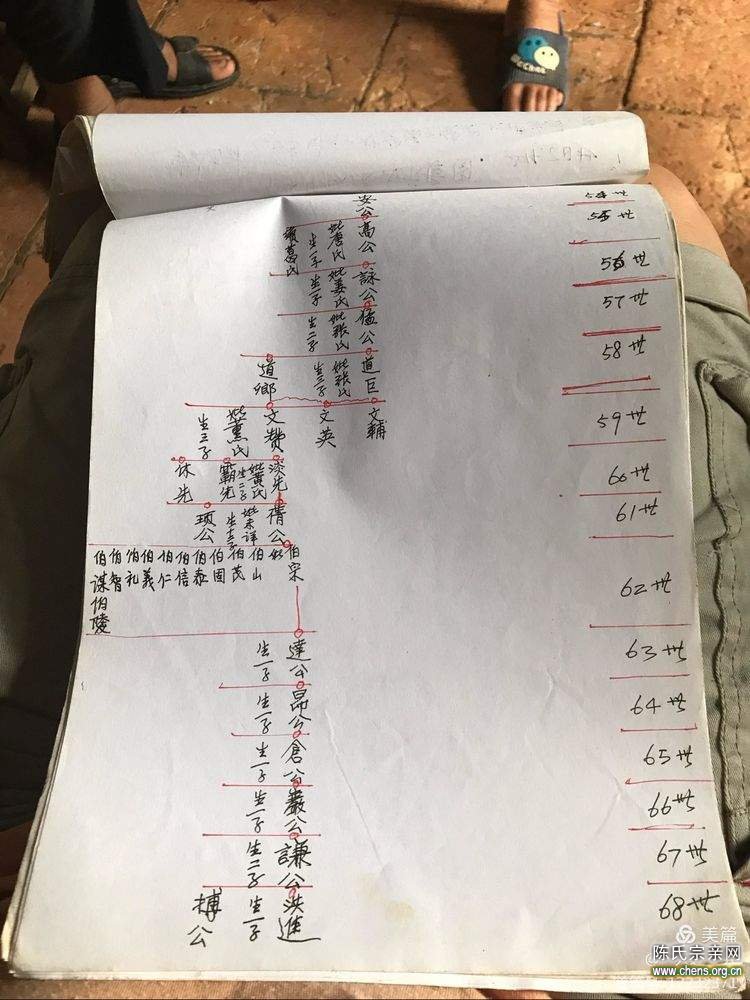 54世
安公
55世
高公
妣唐氏
生一子
諸葛氏
56世
詠公
妣姜氏
生一子
57世
猛公
妣張氏
生二子
58世
道巨
妣張氏
生三子
道鄉
59世
文輔
文英
文贊
妣董氏
生三子
60世
談先
妣黄氏
生二子
霸先
休先
61世
蒨公
妣未詳
生十三子
頊公
62世
伯宗
伯山
伯茂
伯固
伯泰
伯信
伯仁
伯義
伯礼
伯智
伯謀
伯陵
63世
達公
生一子
64世
昂公
生一子
65世
倉公
生一子
66世
嚴公
生一子
67世
謙公
生二子
68世
洪進
生一子
搏公
美篇
陈氏宗亲网
www.chens.org.cn